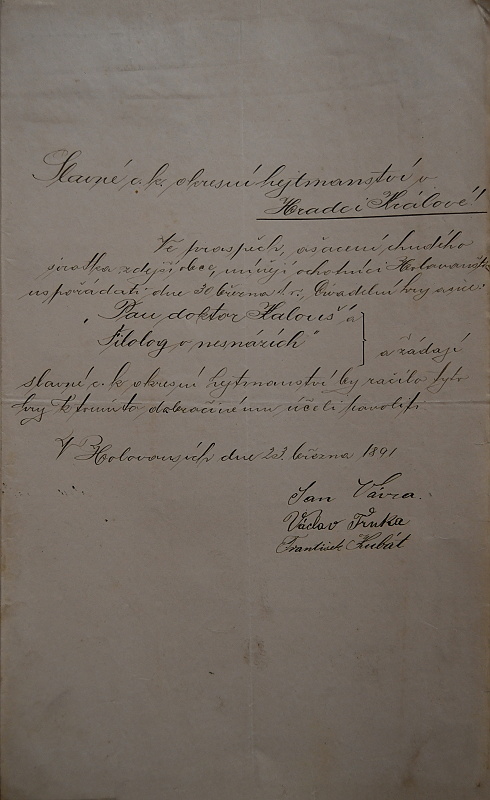 Slavné c. k. okresní hejtmanství v
Hradci Králové!
Ve prospěch, ošacení chudého
sirotka zdejší obce, mínějí ochotníci Holovousští
uspořádati dne 30 března t. r. divadelní hry a sice:
„Pan doktor Kalouš" a
Filolog v nesnázích"
a žádají
slavné c. k. okresní hejtmanství by račilo tyto
hry k tomuto dobročinému účeli povoliti.
V Holovousích dne 23. března 1891
Jan Vávra.
Václav
František Kubát